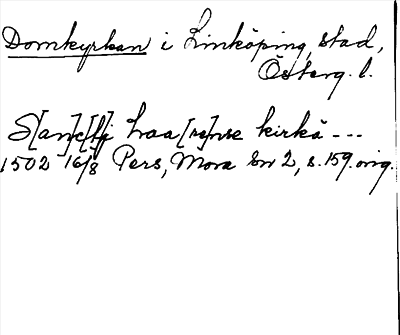 Domkyrkan i Linköping, stad,
Österg. l.
S[an]c[t]i Laa[re]nse kirkä ---
1502 16/8 Pers, Mora Sv 2, s. 159. orig.